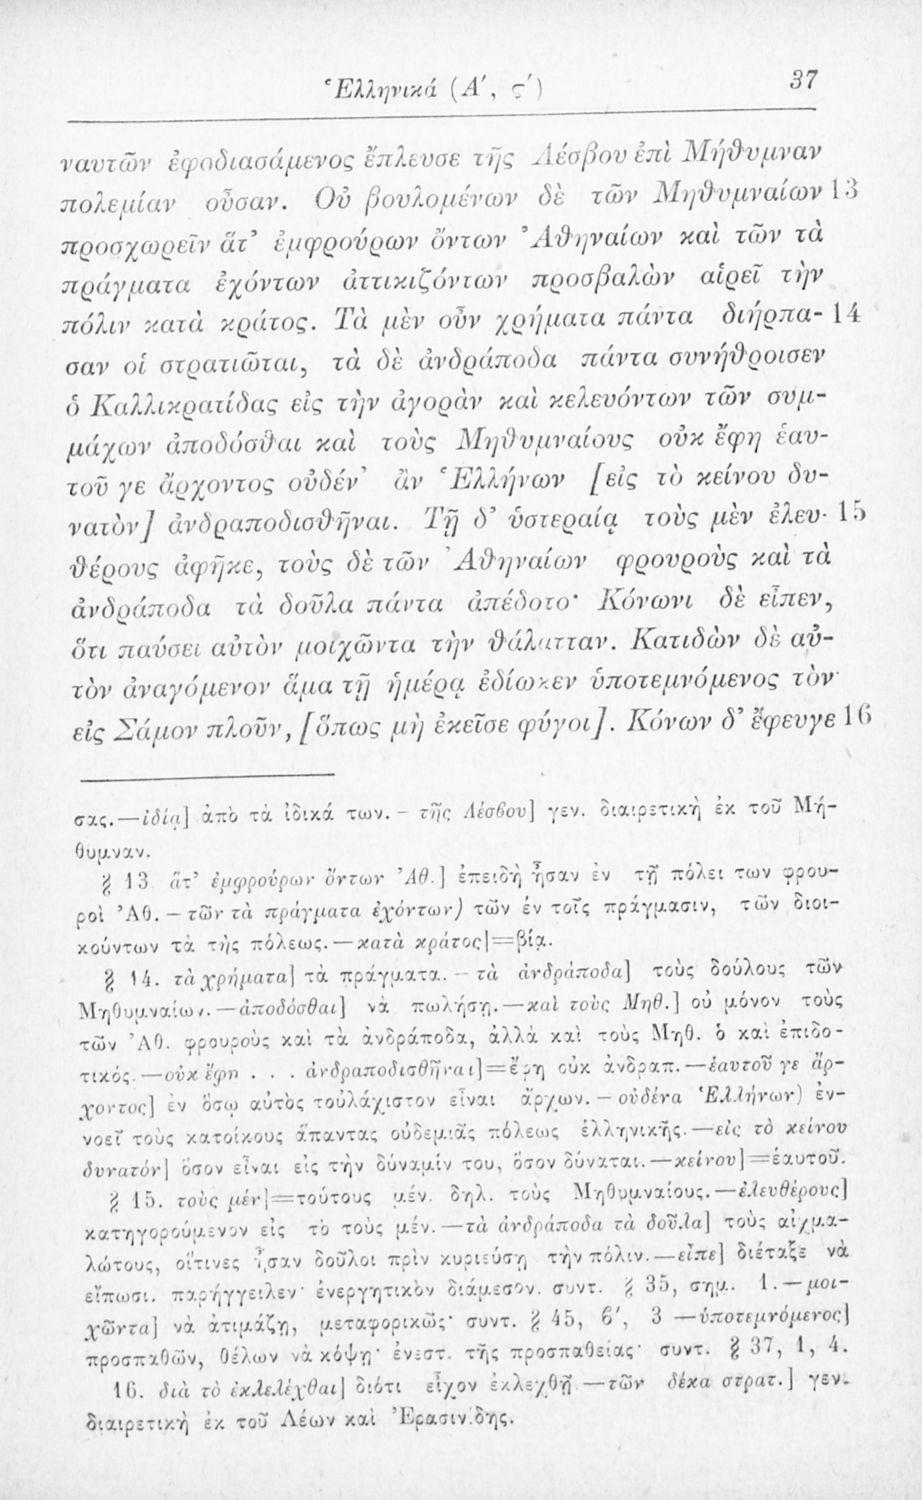 Ἑλληνικά (Α΄, ς΄)
37
ναυτῶν ἐφοδιασάμενος ἔπλευσε τῆς Λέσβου ἐπὶ Μήθυμναν
πολεμίαν οὖσαν. Οὐ βουλομένων δὲ τῶν Μηθυμναίων 13
προσχωρεῖν ἅτ' ἐμφρούρων ὄντων Ἀθηναίων καὶ τῶν τὰ
πράγματα ἐχόντων ἀττικιζόντων προσβαλὼν αἱρεῖ τὴν
πόλιν κατὰ κράτος. Τὰ μὲν οὖν χρήματα πάντα διήρπα- 14
σαν οἱ στρατιῶται, τὰ δὲ ἀνδράποδα πάντα συνήθροισεν
ὁ Καλλικρατίδας εἰς τὴν ἀγορὰν καὶ κελευόντων τῶν συμ-
μάχων ἀποδόσθαι καὶ τοὺς Μηθυμναίους οὐκ ἔφη ἑαυ-
τοῦ γε ἄρχοντος οὐδέν' ἂν Ἑλλήνων [εἰς τὸ κείνου δυ-
νατὸν] ἀνδραποδισθῆναι. Τῇ δ' ὑστεραίᾳ τοὺς μὲν ἐλευ- 15
θέρους ἀφῆκε, τοὺς δὲ τῶν Ἀθηναίων φρουροὺς καὶ τὰ
ἀνδράποδα τὰ δοῦλα πάντα ἀπέδοτο· Κόνωνι δὲ εἶπεν,
ὅτι παύσει αὐτὸν μοιχῶντα τὴν θάλατταν. Κατιδὼν δὲ αὐ-
τὸν ἀναγόμενον ἅμα τῇ ἡμέρᾳ ἐδίωκεν ὑποτεμνόμενος τὸν
εἰς Σάμον πλοῦν, [ὅπως μὴ ἐκεῖσε φύγοι]. Κόνων δ' ἔφευγε 16
σας.—ἰδίᾳ] ἀπὸ τὰ ἰδικά των. – τῆς Λέσβου] γεν. διαιρετικὴ ἐκ τοῦ Μή-
θυμναν.
§ 13. ἅτ' ἐμφρούρων ὄντων Ἀθ.] ἐπειδὴ ἦσαν ἐν τῇ πόλει των φρου-
ροὶ Ἀθ. – τῶν τὰ πράγματα ἐχόντων) τῶν ἐν τοῖς πράγμασιν, τῶν διοι-
κούντων τὰ τῆς πόλεως. — κατὰ κράτος]=βίᾳ.
§ 14. τὰ χρήματα] τὰ πράγματα. – τὰ ἀνδράποδα] τοὺς δούλους τῶν
Μηθυμναίων. — ἀποδόσθαι] νὰ πωλήσῃ.—καὶ τοὺς Μηθ.] οὐ μόνον τοὺς
τῶν Ἀθ. φρουροὺς καὶ τὰ ἀνδράποδα, ἀλλὰ καὶ τοὺς Μηθ. ὁ καὶ ἐπιδο-
τικός.—οὐκ ἔφη . . . ἀνδραποδισθῆναι]=ἔφη οὐκ ἀνδραπ.—ἑαυτοῦ γε ἄρ-
χοντος] ἐν ὅσῳ αὐτὸς τοὐλάχιστον εἶναι ἄρχων. – οὐδένα Ἑλλήνων) ἐν-
νοεῖ τοὺς κατοίκους ἅπαντας οὐδεμιᾶς πόλεως ἑλληνικῆς.—εἰς τὸ κείνου
δυνατόν] ὅσον εἶναι εἰς τὴν δύναμίν του, ὅσον δύναται.—κείνου]=ἑαυτοῦ.
§ 15. τοὺς μέν]=τούτους μέν. δηλ. τοὺς Μηθυμναίους.—ἐλευθέρους]
κατηγορούμενον εἰς τὸ τοὺς μέν.—τὰ ἀνδράποδα τὰ δοῦλα] τοὺς αἰχμα-
λώτους, οἵτινες ἦσαν δοῦλοι πρὶν κυριεύσῃ τὴν πόλιν.—εἶπε] διέταξε νὰ
εἴπωσι. παρήγγειλεν· ἐνεργητικὸν διάμεσον. συντ. § 35, σημ. 1.—μοι-
χῶντα] νὰ ἀτιμάζῃ, μεταφορικῶς· συντ. § 45, β΄, 3 —ὑποτεμνόμενος]
προσπαθῶν, θέλων νὰ κόψῃ· ἐνεστ. τῆς προσπαθείας· συντ. § 37, 1, 4.
16. διὰ τὸ ἐκλελέχθαι] διότι εἶχον ἐκλεχθῆ.—τῶν δέκα στρατ.] γεν.
διαιρετικὴ ἐκ τοῦ Λέων καὶ Ἐρασινίδης.